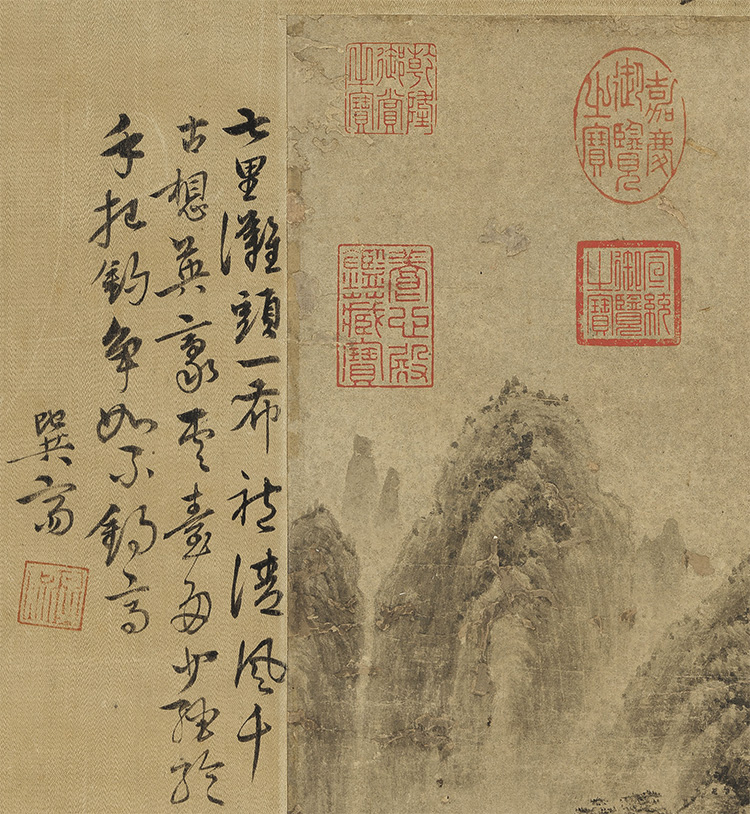 嘉慶
御覽
之寶
宣統
御覽
之寶
乾隆
御賞
之寶
養心殿
鑑藏寶
七里灘頭一布袍清風千
古想英豪雲臺多少經綸
手把釣爭如不釣高
巽齋